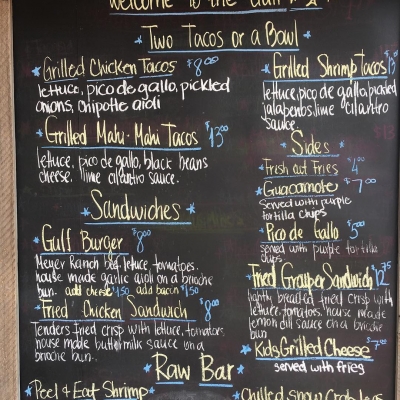 Welcome to the Gulf
Two Tacos or a Bowl
Grilled Chicken Tacos $8.00
lettuce, pico de gallo, pickled
onions, chipotle aioli
Grilled Mahi-Mahi Tacos $13.00
lettuce, pico de gallo, black beans
cheese, lime cilantro sauce.
Sandwiches
Gulf Burger $8.00
Meyer Ranch beef lettuce, tomatoes,
house made garlic aioli on a brioche
bun. add cheese $1.50 add bacon $1.50
Fried Chicken Sandwich $8.00
Tenders fried crisp with lettuce, tomatoes,
house made buttermilk sauce on a
brioche bun.
Grilled Shrimp Tacos $13
lettuce, pico de gallo, pickled
jalapeños, lime cilantro
sauce
Sides
Fresh cut Fries $4.00
Guacamole $7.00
served with purple
tortilla chips
Pico de Gallo $5.00
served with purple tortilla
chips
Fried Grouper Sandwich $12.75
lightly breaded, fried crisp with
lettuce, tomatoes, house made
lemon dill sauce on a brioche
bun
Kids Grilled Cheese $7.00
served with fries
Raw Bar
Peel & Eat Shrimp
Chilled Snow Crab Legs